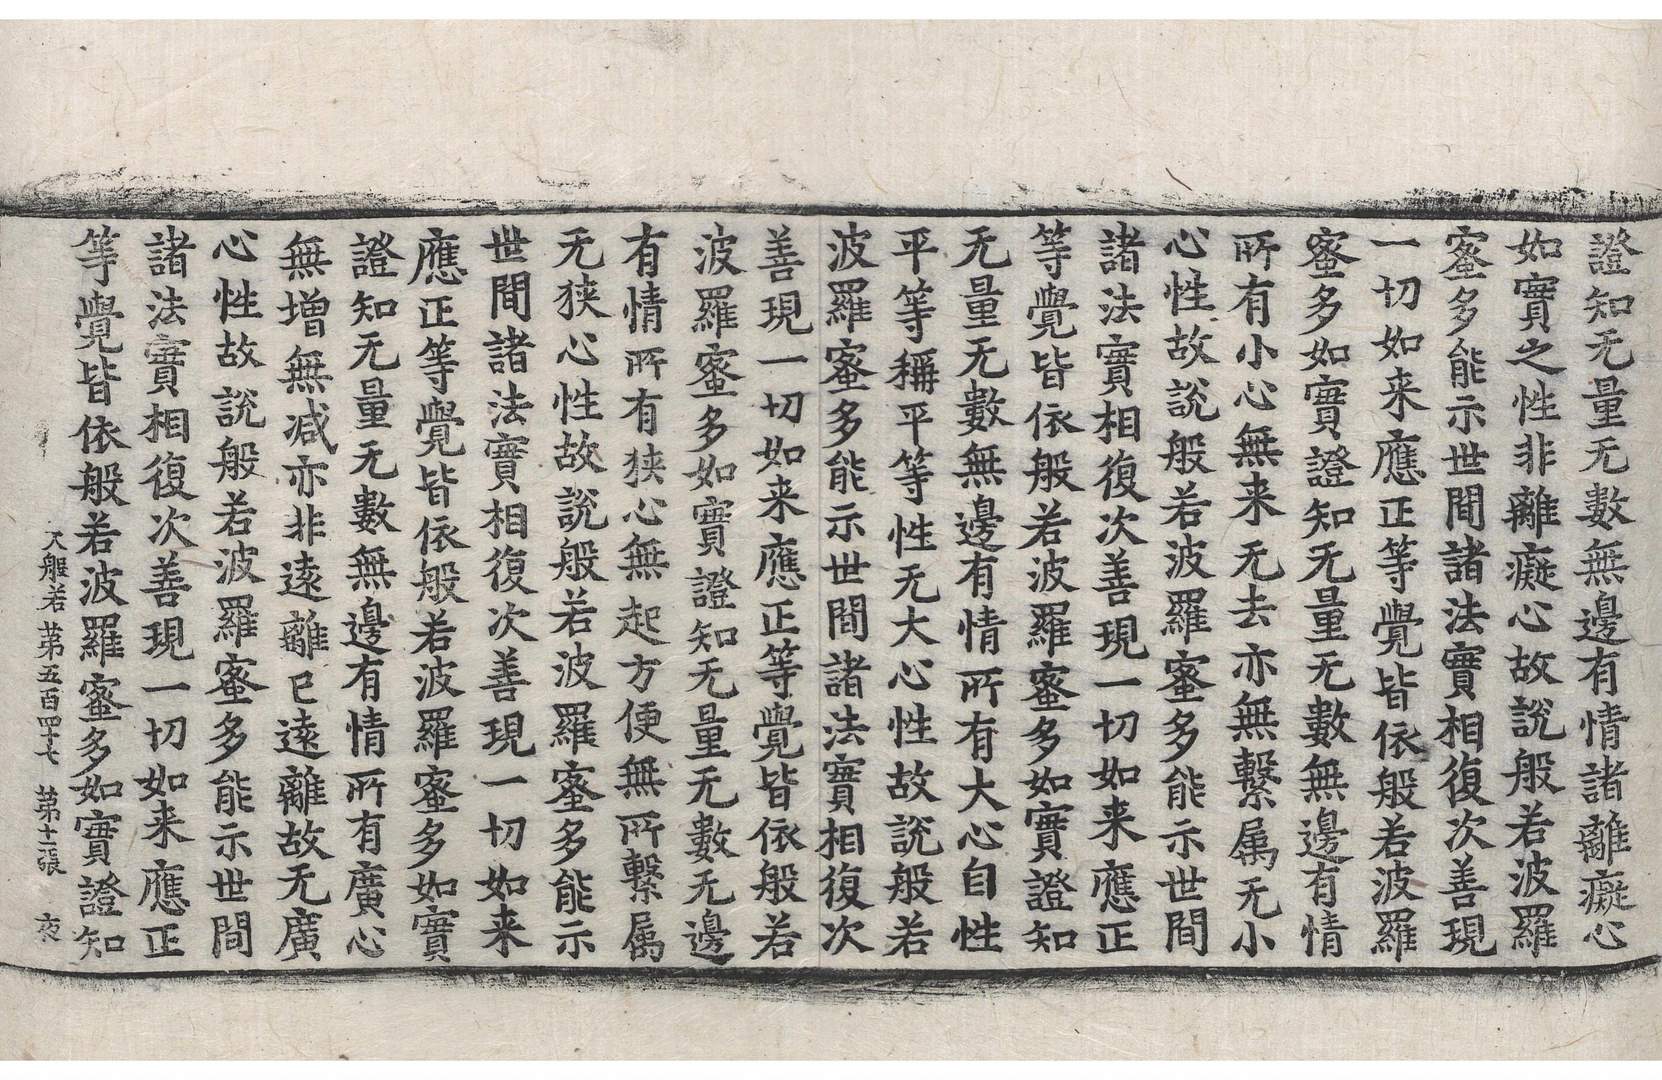 證知无量无數無邊有情諸離癡心
如實之性非離癡心故說般若波羅
蜜多能示世間諸法實相復次善現
一切如来應正等覺皆依般若波羅
蜜多如實證知无量无數無邊有情
所有小心無来无去亦無繫属无小
心性故說般若波羅蜜多能示世間
諸法實相復次善現一切如来應正
等覺皆依般若波羅蜜多如實證知
无量无數無邊有情所有大心自性
平等稱平等性无大心性故說般若
波羅蜜多能示世間諸法實相復次
善現一切如来應正等覺皆依般若
波羅蜜多如實證知无量无數无邊
有情所有狹心無起方便無所繫属
无狹心性故說般若波羅蜜多能示
世間諸法實相復次善現一切如来
應正等覺皆依般若波羅蜜多如實
證知无量无數無邊有情所有廣心
無增無减亦非遠離已遠離故无廣
心性故說般若波羅蜜多能示世間
諸法實相復次善現一切如来應正
等覺皆依般若波羅蜜多如實證知
大般若第五百四十七 第十二張 夜